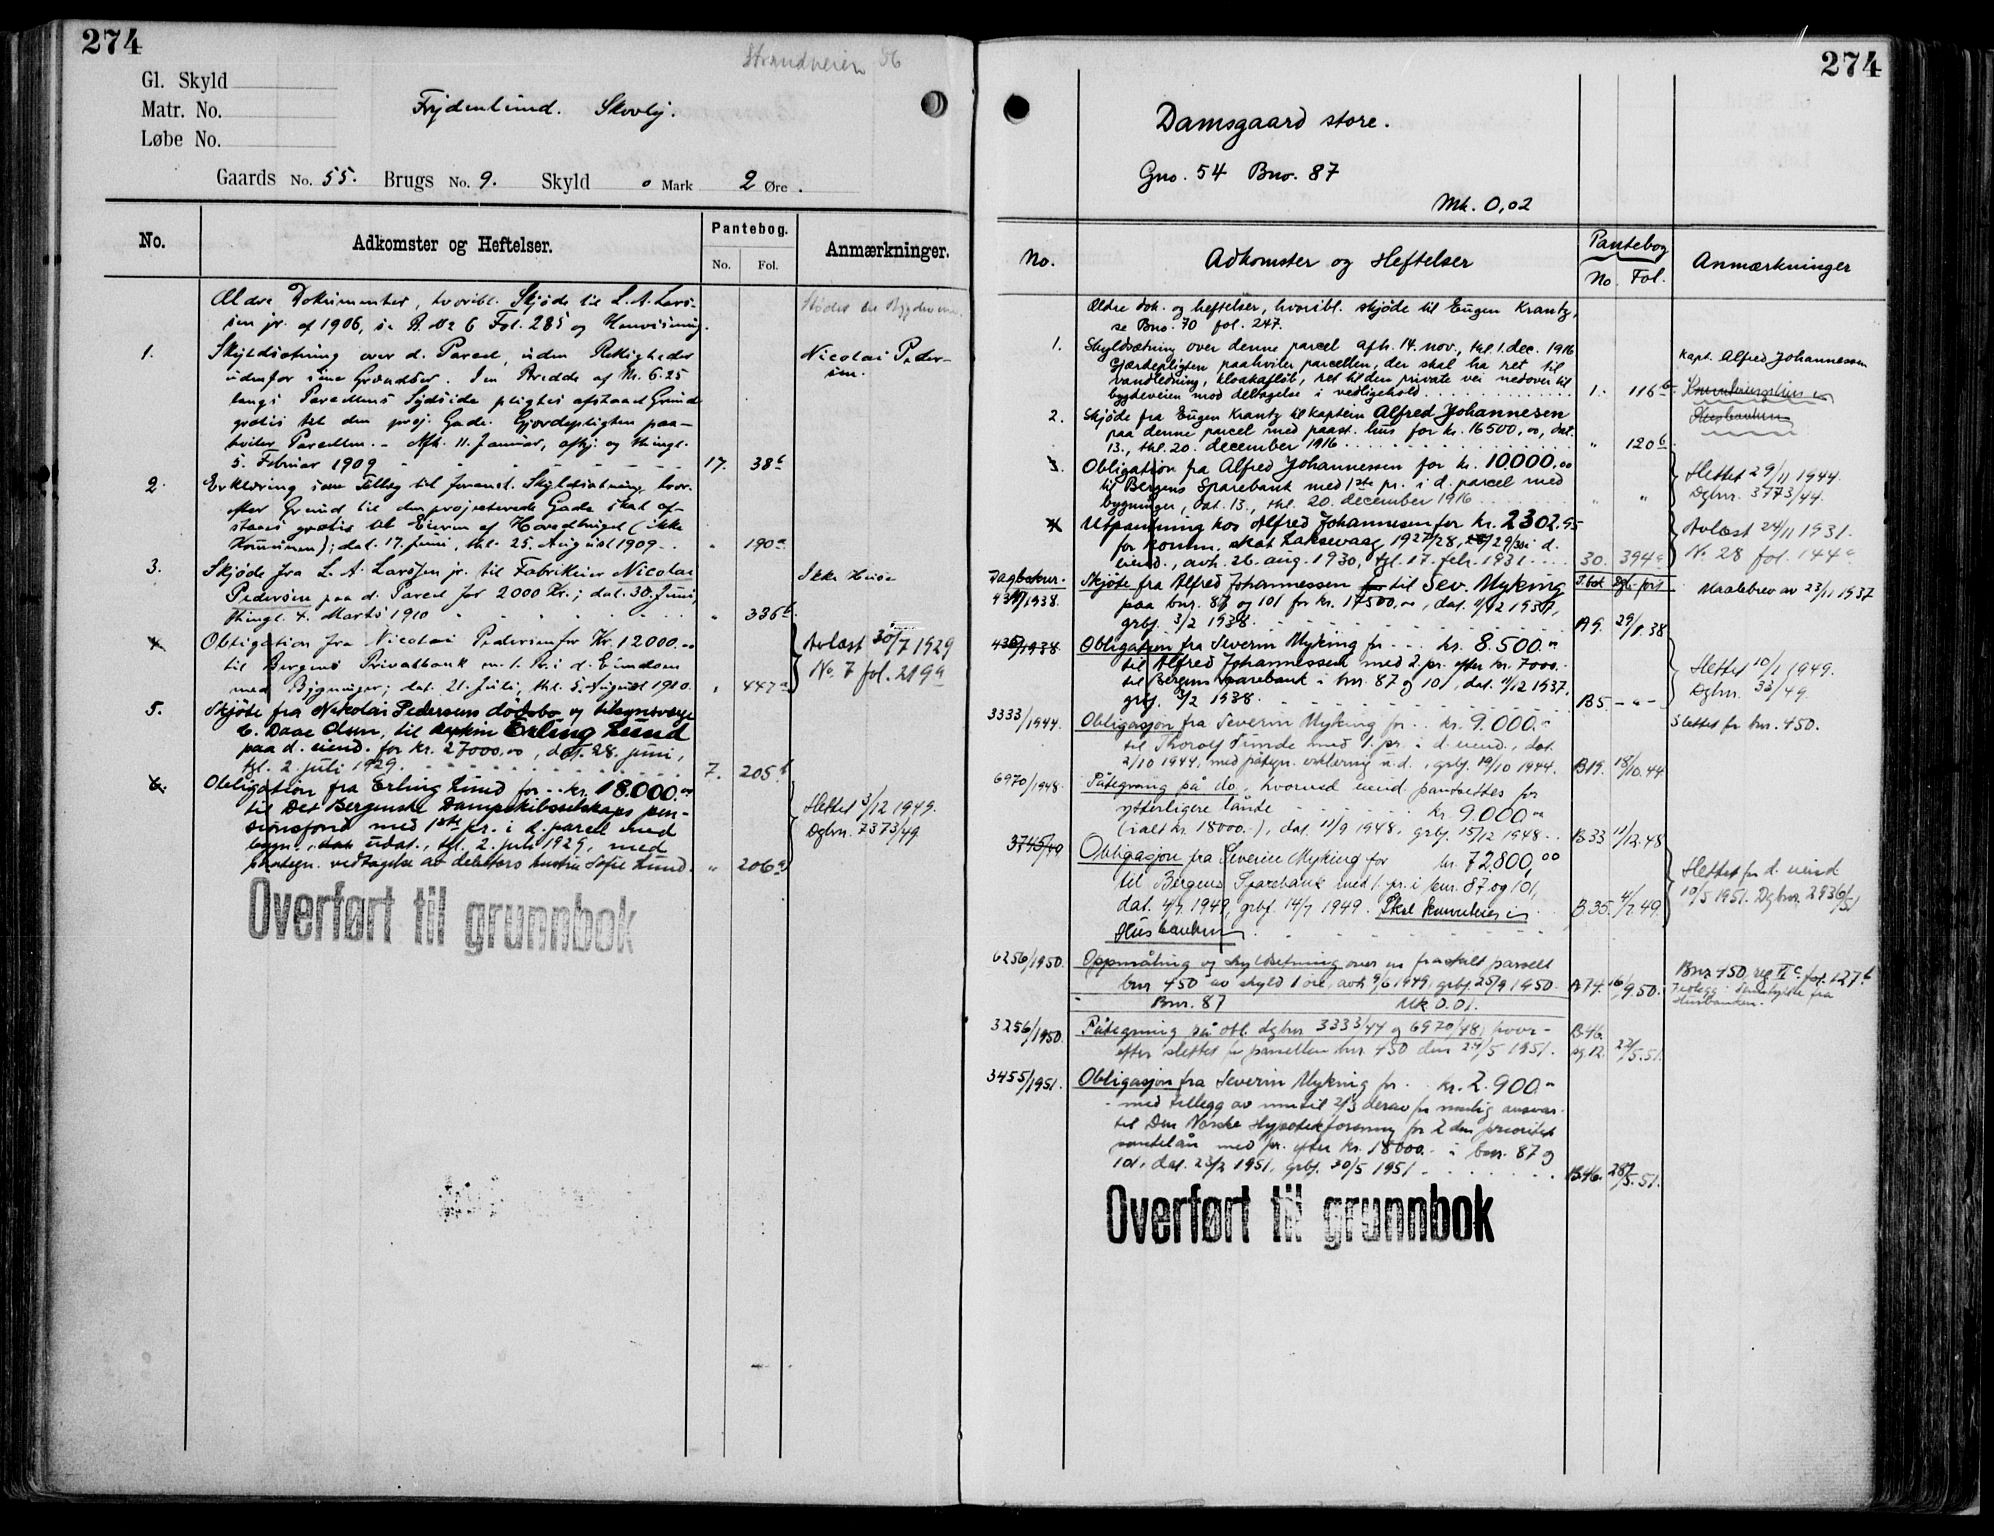 274
Strandveien 56
Gl. Skyld
Matr. No.
Løbe No.
Frydenlund. Skovly.
Gaards No. 55. Brugs No. 9. Skyld 0 Mark 2 Øre.
No. Adkomster og Heftelser. Pantebog. No. Fol. Anmærkninger.
Ældre Dokumenter, hvoribl. Skjøde til L. A. Lars-
sen jr. af 1906, se B. No 6 Fol. 285 og Henvisning.
1. Skyldsætning over d. Parcel, uden Rettigheder Nicolai Peder-
udenfor sine Grændser. En Bredde af M. 6.25 sen.
langs Parcellens Sydside pligtes afstaaet Grund
gratis til den proj. Gade. Gjerdepligten paa-
hviler Parcellen. - Afh. 11. Januar, afhj. og thingl.
5. Februar 1909 17. 38b
2. Erklæring som Tillæg til foranst. Skyldsætning, hvor-
efter Grund til den projecterede Gade skal af-
staaes gratis til Eieren af Hovedbruget (ikke
Kommunen); dat. 17. Juni, thl. 25. August 1909 " 190a
3. Skjøde fra L. A. Larssen jr. til Fabrikeier Nicolai
Pedersen paa d. Parcel for 2000 Kr.; dat. 30. Juni,
thingl. 4. Marts 1910 " 336b
4. Obligation fra Nicolai Pedersen for Kr. 12000.00 Avlæst 30/7 1929
til Bergens Privatbank m. 1. Pr. i d. Eiendom No. 7 fol. 219a
med Bygninger; dat. 21. Juli, thl. 5. August 1910. " 447a
5. Skjøte fra Nikolai Pedersens dødsbo og tilsynsverge
C. Daae Olsen, til Erling Lund
paa d. eiend. for kr. 27000.00, dat. 28. juni,
tgl. 2. juli 1929. 7. 205b
6. Obligation fra Erling Lund for kr. 18.000.00 Slettet 3/12 1949.
til Det Bergenske Dampskibsselskaps pen- Dgbnr. 7373/49
sionsfond med 1ste pr. i d. parcel med
bygn., dat. udat., tgl. 2. juli 1929, med
paategn. vedtagelse av debitors hustru Sofie Lund. " 206a
Overført til grunnbok
274
Damsgaard store.
Gno. 54 Bno. 87
Mk. 0,02
No. Adkomster og Heftelser Pantebog No. Fol. Anmærkninger
Ældre dok. og heftelser, hvoribl. skjøde til Eugen Krantz,
se Bno. 70 fol. 247.
1. Skyldsætning over denne parcel afh. 14. nov., thl. 1. dec. 1916 Kapt. Alfred Johannessen
Gjærdepligten paahviler parcellen, der skal ha ret til
vandledning, kloakafløb, ret til den private vei nedover til
bygdeveien mod deltagelse i vedligehold. 1. 116b
2. Skjøde fra Eugen Krantz til kaptein Alfred Johannesen Husbanken
paa denne parcel med paast. hus for kr. 16500,00, dat.
13., thl. 20. december 1916 " 120b
3. Obligation fra Alfred Johannessen for kr. 10.000,00 Slettet 29/11 1944.
til Bergens Sparebank med 1ste pr. i d. parcel med Dgbnr. 3773/44.
bygninger, dat. 13., thl. 20. december 1916 " "
4. Utpantning hos Alfred Johannesen for kr. 2302.95 Avlæst 24/11 1931.
for komm. skat Laksevaag 1927/28, 28/29 i d. No. 28 fol. 144a
eiend., avh. 26. aug. 1930, tgl. 17. febr. 1931 30. 394a
Dagboknr. 437/1938. Skjøte fra Alfred Johannessen til Sev. Myking Maalebrev av 23/11 1937
paa bnr. 87 og 101 for kr. 17500.00, dat. 11/12 1937,
grbf. 3/2 1938. A9. 29/1.38
438/1938. Obligasjon fra Severin Myking for kr. 8.500.00 Slettet 10/1 1949.
til Alfred Johannessen med 2. pr. efter kr. 7000.- Dgbnr. 33/49.
til Bergens Sparebank i bnr. 87 og 101, dat. 11/12 1937,
grbf. 3/2 1938. B5. - " -
3333/1944. Obligasjon fra Severin Myking for kr. 9.000.- Slettet for bnr. 450.
til Thorolf Tunde med 1. pr. i d. eiend., dat.
2/10 1944, med påtegn. erklæring u. d., grbf. 19/10 1944. B19. 18/10.44
6970/1948. Påtegning på do., hvorved eiend pantsettes for
ytterligere lånde kr 9.000.00
(ialt kr. 18000.-), dat. 11/9 1948, grbf. 15/12 1948. B33 11/12.48
3745/49 Obligasjon fra Severin Myking for kr. 72.800,00 Slettet for d. eiend
til Bergens Sparebank med 1. pr. i bnr. 87 og 101, 10/5 1951. Dgbnr. 2936/51
dat. 4/7 1949, grbf. 14/7 1949. B35. 4/7.49.
Husbanken
6256/1950. Oppmåling og skyldsetning over en fraskilt parsell Bnr 450, reg VIc fol. 127b
bnr 450 av skyld 1 øre, avh 9/6 1949, grbf. 25/9 1950. A74. 16/9.50.
Bnr. 87 Mk 0.01.
3256/1950. Påtegning på obl. dgbnr 3333/44 og 6970/48, hvor- B46.
efter slettet for parsellen bnr. 450 den 24/5 1951. sg.12. 22/5.51
3455/1951. Obligasjon fra Severin Myking for kr. 2.900.-
- med tillegg av inntil 2/3 derav for mulig ansvar -
til Den Norske Hypotekforening for 2den prioritets
pantelån med pr. efter kr. 18000.- i bnr. 87 og
101, dat. 23/2 1951, grbf. 30/5 1951. B46. 28/5.51.
Overført til grunnbok